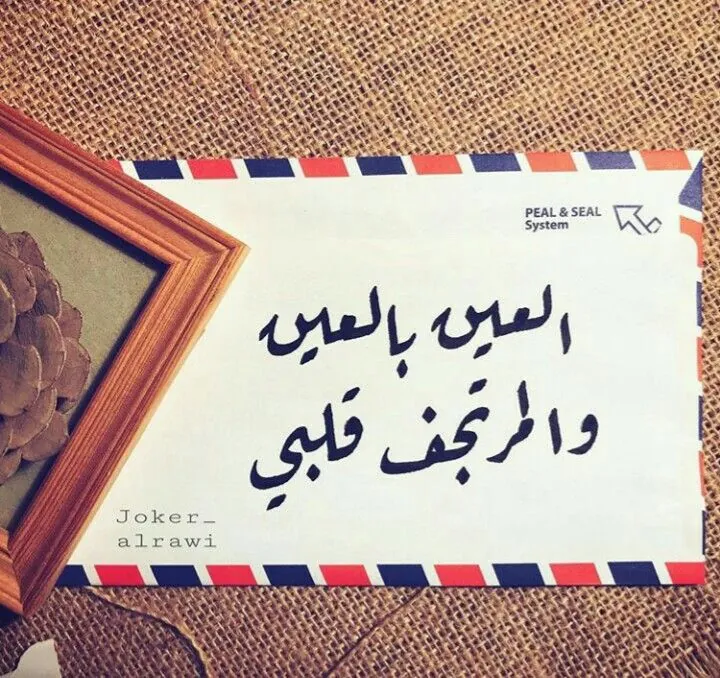 PEAL & SEAL
System
العين بالعين
والمرتجف قلبي
Joker_
alrawi